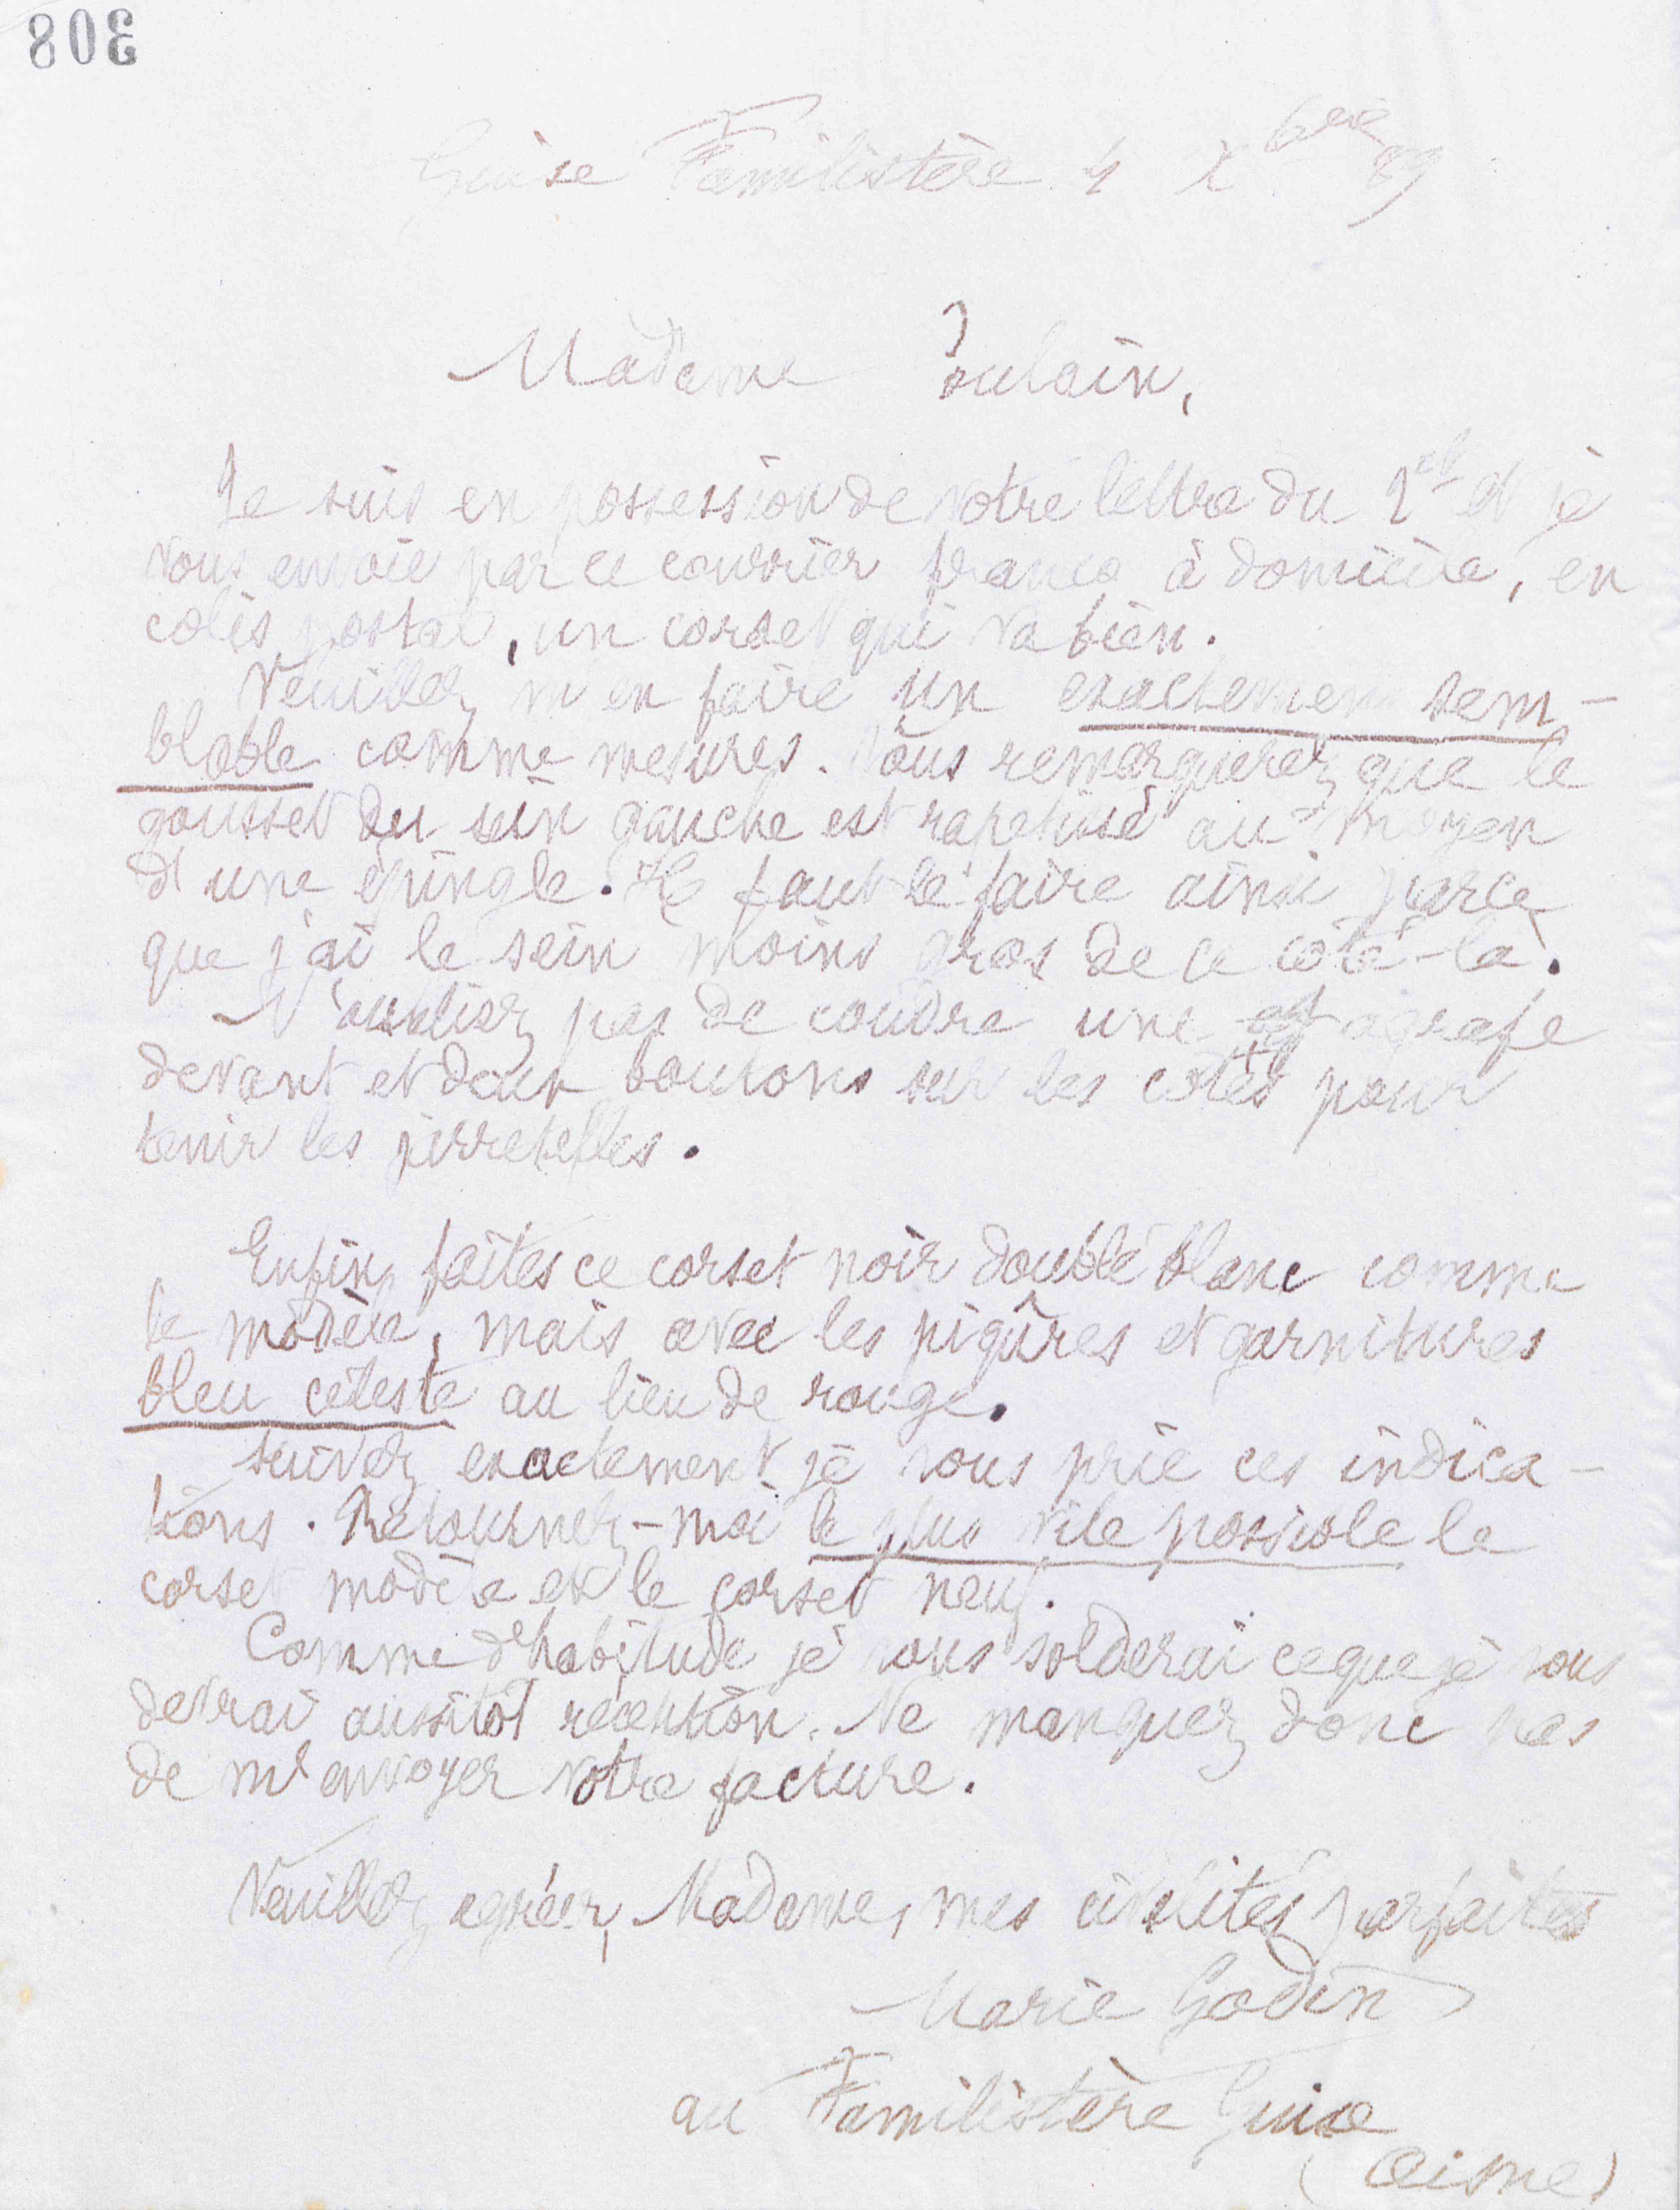 308
Guise Familistère 4 Xbre 89
Madame Poulain,
Je suis en possession de votre lettre du 1er et je
vous envoie par ce courrier franco à domicile, en
colis postal, un corset qui va bien.
Veuillez m'en faire un exactement sem-
blable comme mesures. Vous remarquerez que le
gousset du sein gauche est rapetissé au moyen
d'une épingle. Il faut le faire ainsi parce
que j'ai le sein moins gros de ce côté-là.
N'oubliez pas de coudre une agrafe
devant et deux boutons sur les côtés pour
tenir les jarretelles.
Enfin, faites ce corset noir doublé blanc comme
le modèle, mais avec les piqûres et garnitures
bleu céleste au lieu de rouge.
Suivez exactement je vous prie ces indica-
tions. Retournez-moi le plus vite possible le
corset modèle et le corset neuf.
Comme d'habitude je vous solderai ce que je vous
devrai aussitôt réception. Ne manquez donc pas
de m'envoyer votre facture.
Veuillez agréer, Madame, mes civilités parfaites
Marie Godin
au Familistère Guise
(Aisne)